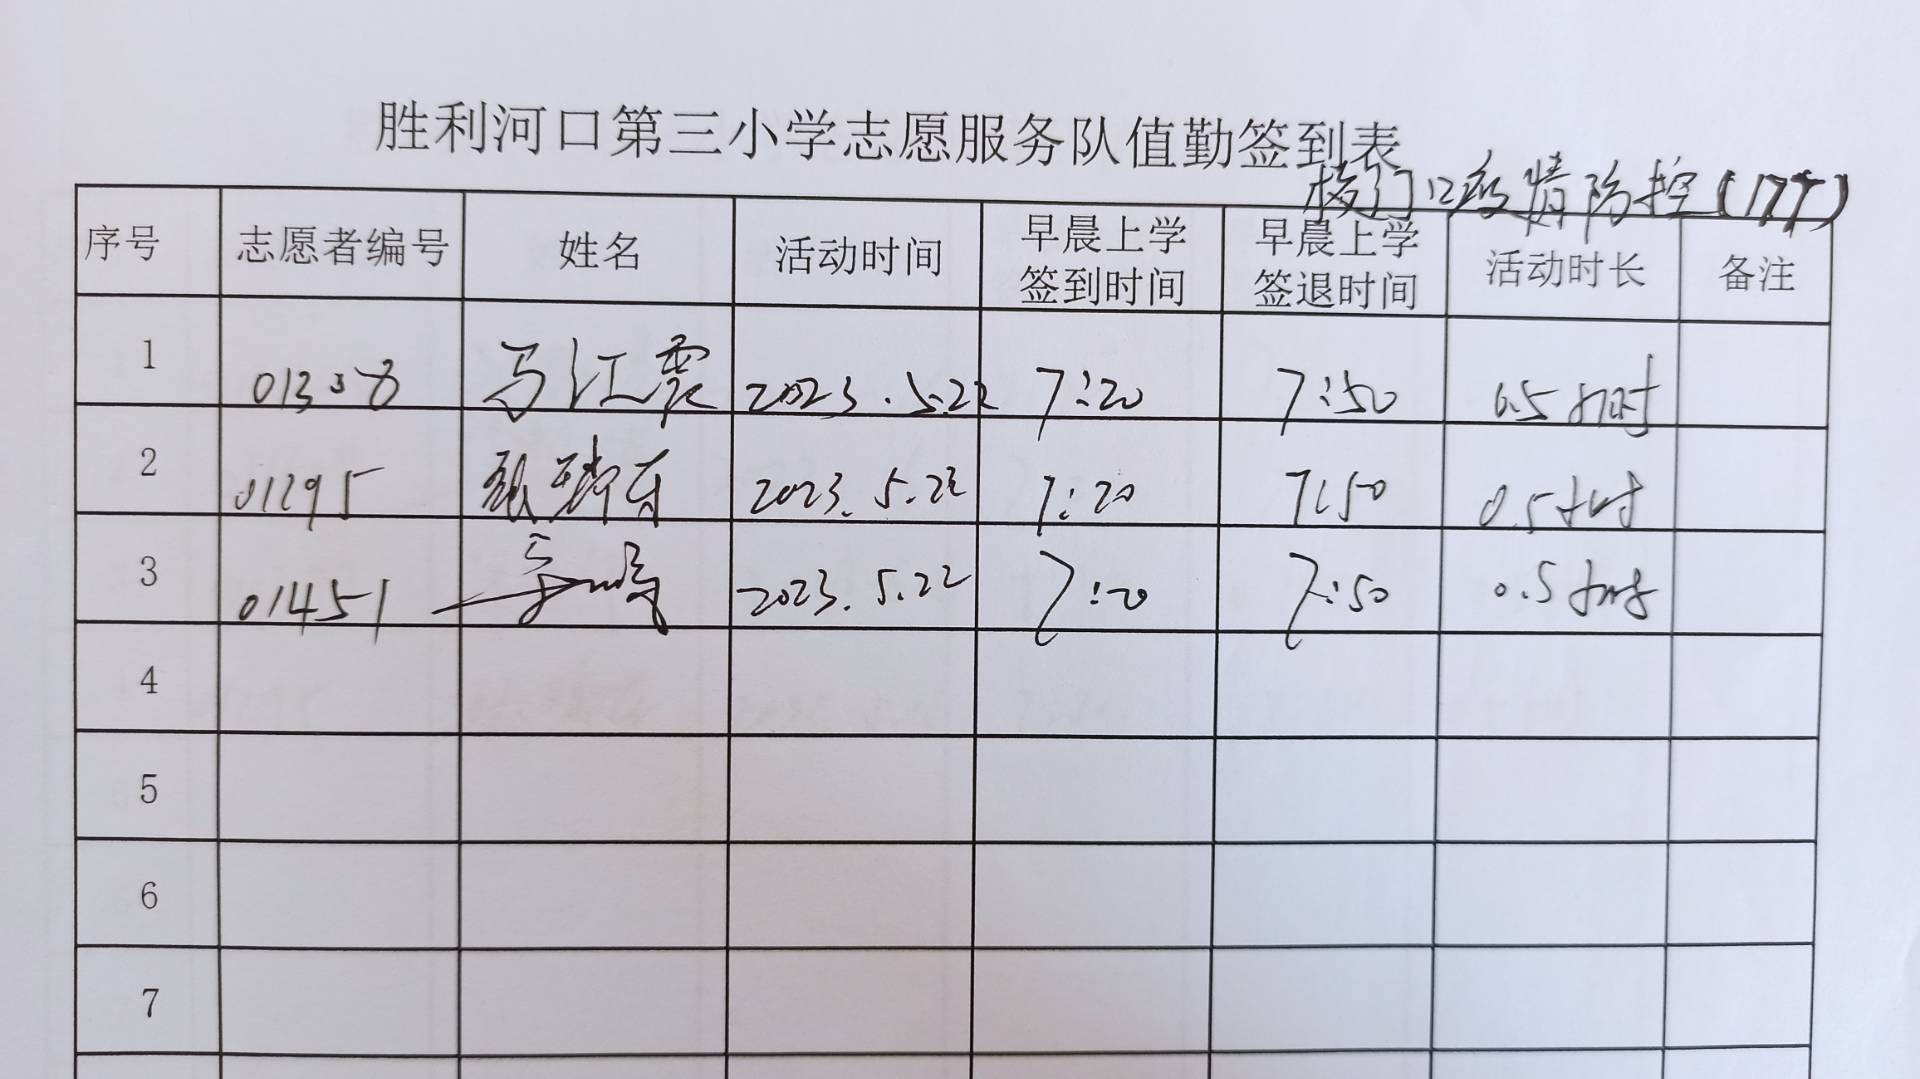 胜利河口第三小学志愿服务队值勤签到表
校门口疫情防控
序号 志愿者编号 姓名 活动时间 早晨上学签到时间 早晨上学签退时间 活动时长 备注
1 01308 马江震 2023.5.22 7:20 7:50 0.5小时
2 01295 2023.5.22 7:20 7:50 0.5小时
3 01451 2023.5.22 7:20 7:50 0.5小时
4
5
6
7